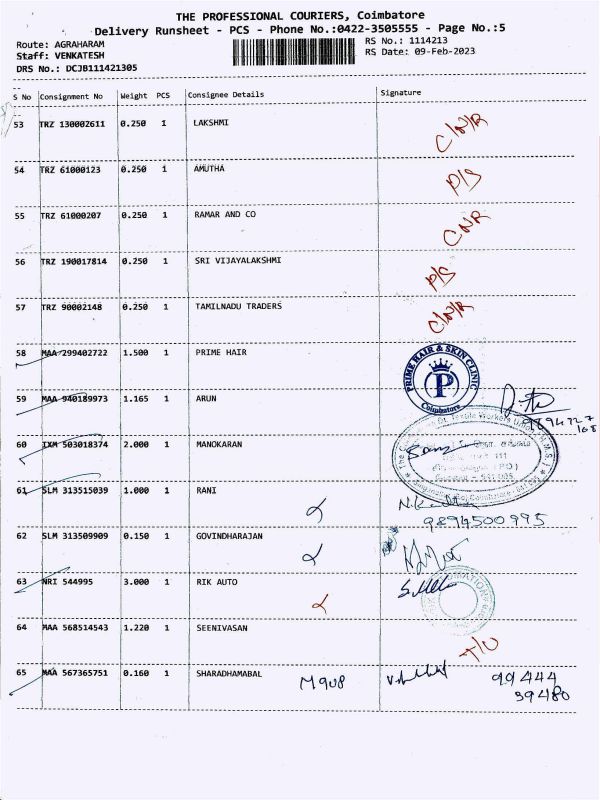 THE PROFESSIONAL COURIERS, Coimbatore
Delivery Runsheet - PCS - Phone No.:0422-3505555 - Page No.:5
Route: AGRAHARAM
RS No.: 1114213
Staff: VENKATESH
RS Date: 09-Feb-2023
DRS No.: DCJB111421305
S No Consignment No Weight PCS Consignee Details Signature
53 TRZ 130002611 0.250 1 LAKSHMI C/N/R
54 TRZ 61000123 0.250 1 AMUTHA P/S
55 TRZ 61000207 0.250 1 RAMAR AND CO CNR
56 TRZ 190017814 0.250 1 SRI VIJAYALAKSHMI P/S
57 TRZ 90002148 0.250 1 TAMILNADU TRADERS C/N/R
58 MAA 299402722 1.500 1 PRIME HAIR
PRIME HAIR & SKIN CLINIC
P
Coimbatore
59 MAA 940189973 1.165 1 ARUN
60 IXM 503018374 2.000 1 MANOKARAN
61 SLM 313515039 1.000 1 RANI
9894500995
62 SLM 313509909 0.150 1 GOVINDHARAJAN
63 NRI 544995 3.000 1 RIK AUTO
64 MAA 568514543 1.220 1 SEENIVASAN
65 MAA 567365751 0.160 1 SHARADHAMABAL M908 99444
39480